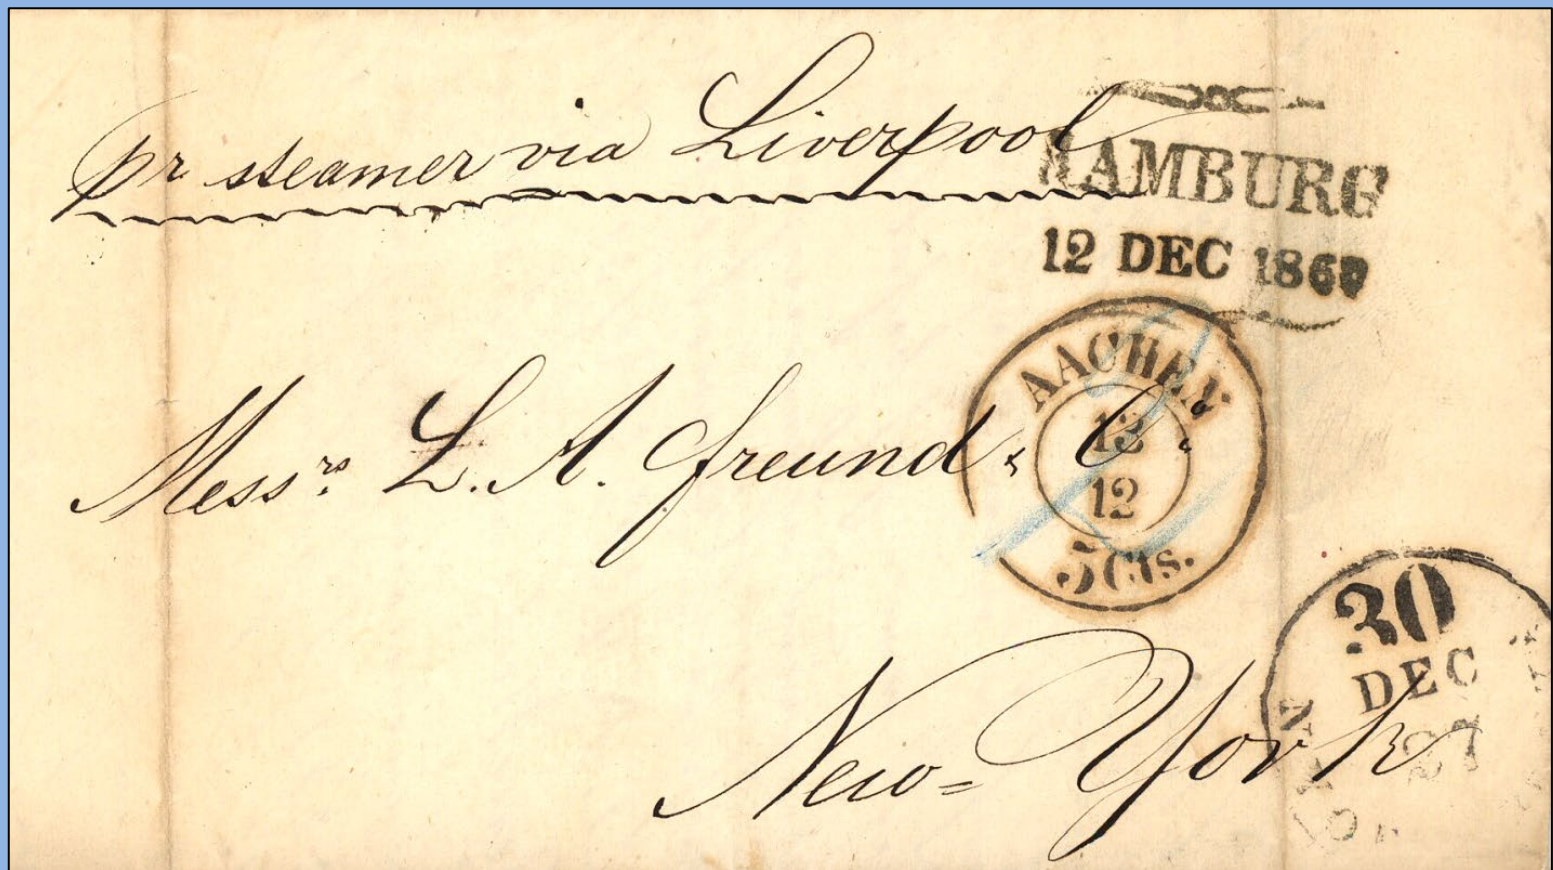 pr steamer via Liverpool
HAMBURG
12 DEC 186
AACHEN
12
12
5 Cts.
Messrs. L. A. Freund & Co.
30
DEC
27
New=York